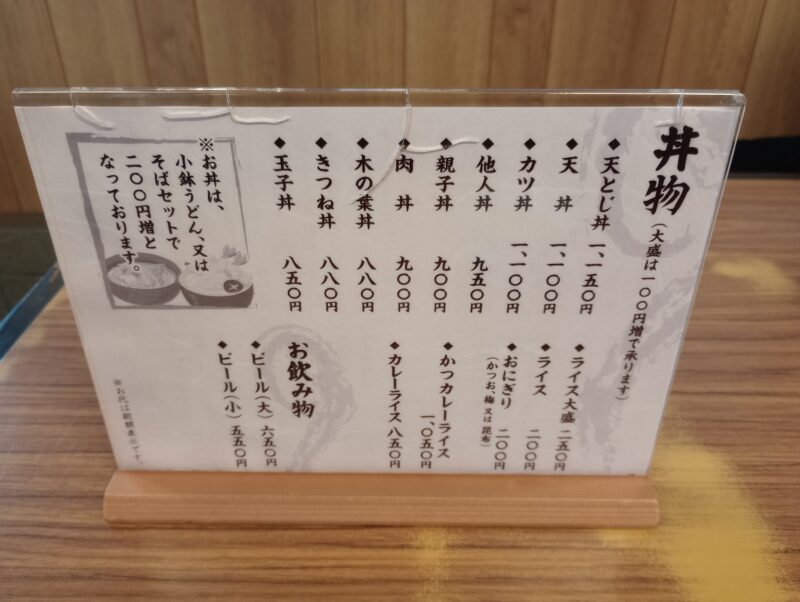 丼物(大盛は一〇〇円増で承ります)
◆天とじ丼 一、一五〇円
◆天 丼 一、一〇〇円
◆カツ丼 一、一〇〇円
◆他人丼 九五〇円
◆親子丼 九〇〇円
◆肉 丼 九〇〇円
◆木の葉丼 八八〇円
◆きつね丼 八八〇円
◆玉子丼 八五〇円
※お丼は、
小鉢うどん、又は
そばセットで
二〇〇円増と
なっております。
◆ライス大盛 二五〇円
◆ライス 二〇〇円
◆おにぎり 二〇〇円
(かつお、梅 又は 昆布)
◆かつカレーライス
一、〇五〇円
◆カレーライス 八五〇円
お飲み物
◆ビール(大) 六五〇円
◆ビール(小) 五五〇円
※お代は総額表示です。